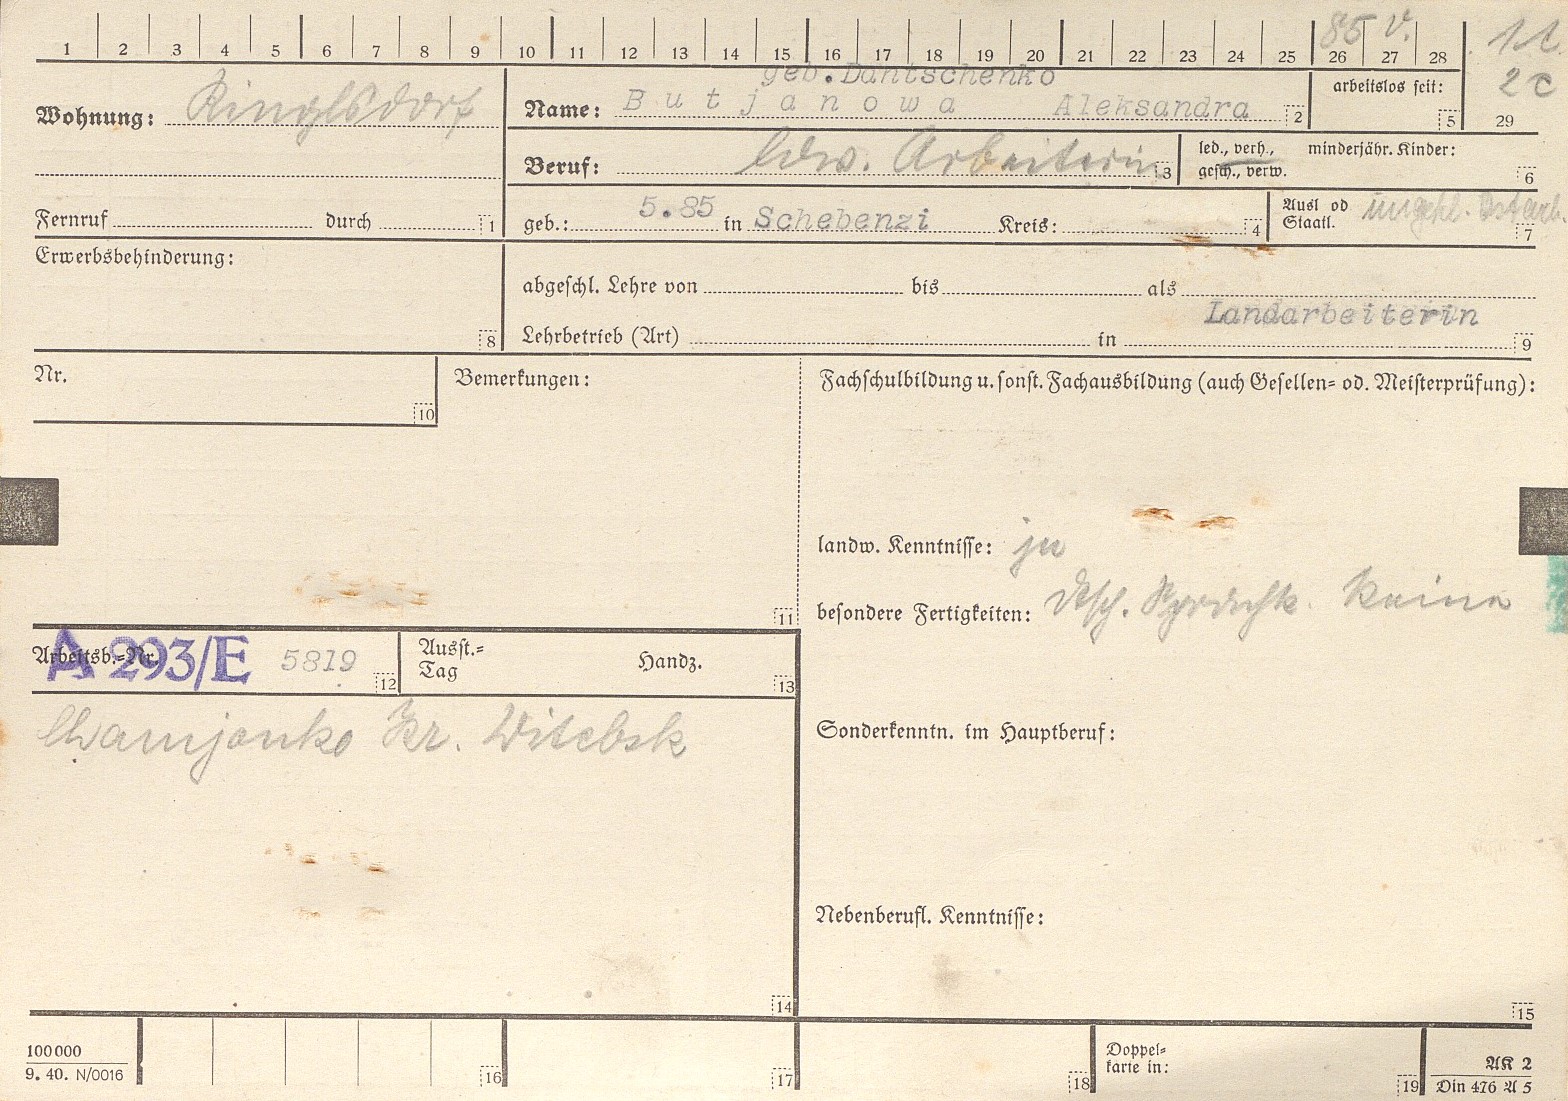 1 2 3 4 5 6 7 8 9 10 11 12 13 14 15 16 17 18 19 20 21 22 23 24 25 26 27 28 29
85 V.
2c
Wohnung: Ringlsdorf
geb. Dantschenko
Name: Butjanowa Aleksandra 2
arbeitslos seit: 5
Beruf: ldw. Arbeiterin 3
led., verh., gesch., verw.
minderjähr. Kinder: 6
Fernruf durch 1
geb.: 5.85 in Schebenzi Kreis: 4
Ausl od Staatl. ungekl. Ostarb. 7
Erwerbsbehinderung: 8
abgeschl. Lehre von bis als
Landarbeiterin
Lehrbetrieb (Art) in 9
Nr. 10
Bemerkungen: 11
Fachschulbildung u. sonst. Fachausbildung (auch Gesellen- od. Meisterprüfung):
landw. Kenntnisse: ja
besondere Fertigkeiten: dtsch. Sprachk. keine
Arbeitsb.-Nr. A 293/E 5819 12
Ausst.-Tag Handz. 13
Kr. Witebsk
14
Sonderkenntn. im Hauptberuf:
Nebenberufl. Kenntnisse:
15
100000
9. 40. N/0016
16
17
18
Doppel-
karte in:
19
AK 2
Din 476 A 5